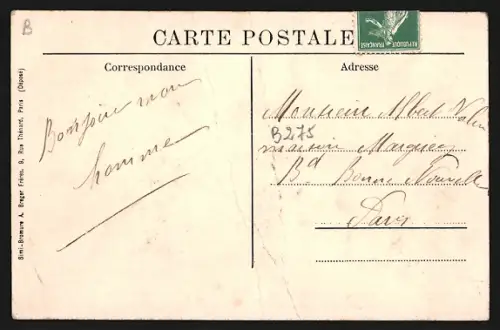 B
CARTE POSTALE
REPUBLIQUE FRANÇAISE
Correspondance
Adresse
Bonjour mon
homme
Monsieur Albert
B275
maison
Bd Bonne Nouvelle
Paris
Simi-Bromure A. Breger Frères, 9, Rue Thénard, Paris (Déposé)